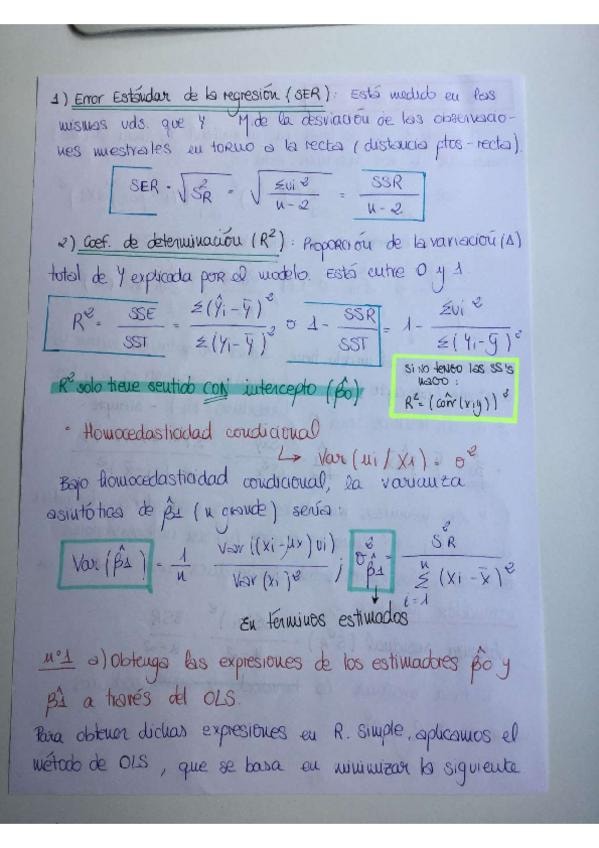 1) Error Estándar de la regresión (SER): Está medido en las
mismas uds. que Y M de la desviación de las observacio-
nes muestrales en torno a la recta (distancia ptos-recta).
SER = √S²R = √Σui²/n-2 = SSR/n-2
2) Coef. de determinación (R²): Proporción de la variación (Δ)
total de Y explicada por el modelo. Está entre 0 y 1
R² = SSE/SST = Σ(Ŷi-Ȳ)²/Σ(Yi-Ȳ)² o 1- SSR/SST = 1- Σui²/Σ(Yi-ȳ)²
R² solo tiene sentido CON intercepto (β̂0)
Si no tengo las SS's
hago:
R² = (côrr(x,y))²
• Homocedasticidad condicional
↳ Var(ui/X1) = σ²
Bajo homocedasticidad condicional, la varianza
asintótica de β̂1 (n grande) sería:
Var(β̂1) = 1/n Var((xi-μx)ui)/Var(xi)² ; σ̂²β̂1 = S²R/Σ(xi-x̄)² n i=1
En términos estimados
Nº1 a) Obtenga las expresiones de los estimadores β̂0 y
β̂1 a través del OLS.
Para obtener dichas expresiones en R. Simple, aplicamos el
método de OLS, que se basa en minimizar la siguiente